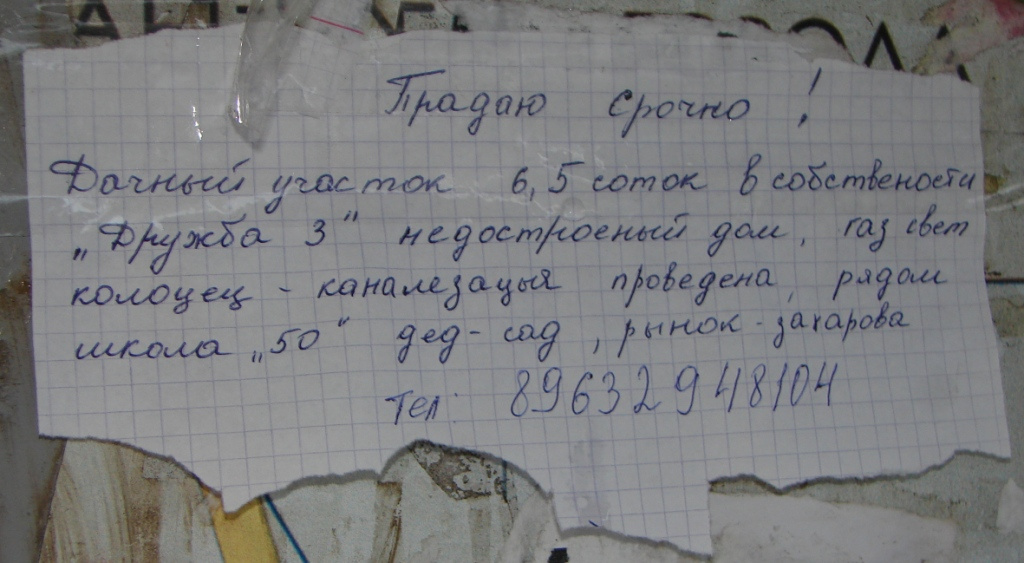 Прадаю срочно!
Дачный участок 6,5 соток в собствености
„Дружба 3" недостроеный дом, газ свет
колоцец - каналезацыя проведена, рядом
школа „50" дед-сад, рынок - захарова
тел: 89632948104